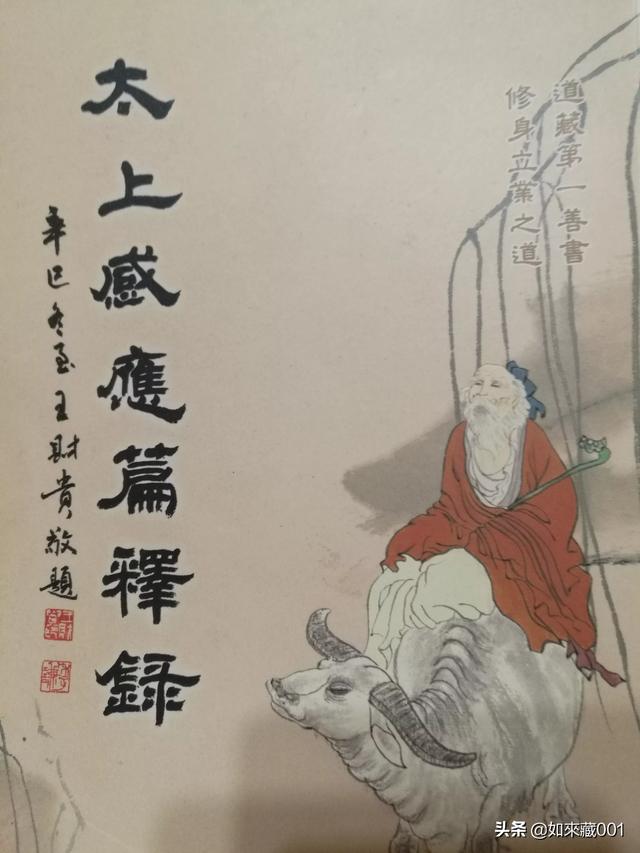 道藏第一善書
修身立業之道
太上感應篇釋錄
辛巳冬至王財貴敬題
头条 @如來藏001